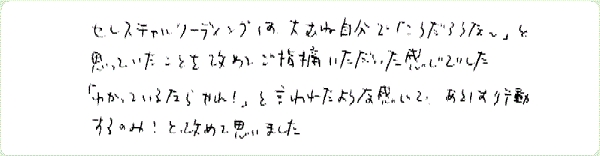 セレスチャルリーディングは、大むね自分で「こうだろうな〜」と
思っていたことを改めてご指摘いただいた感じでした
「わかっているならやれ！」と言われたような感じで、あとは行動
するのみ！と改めて思いました